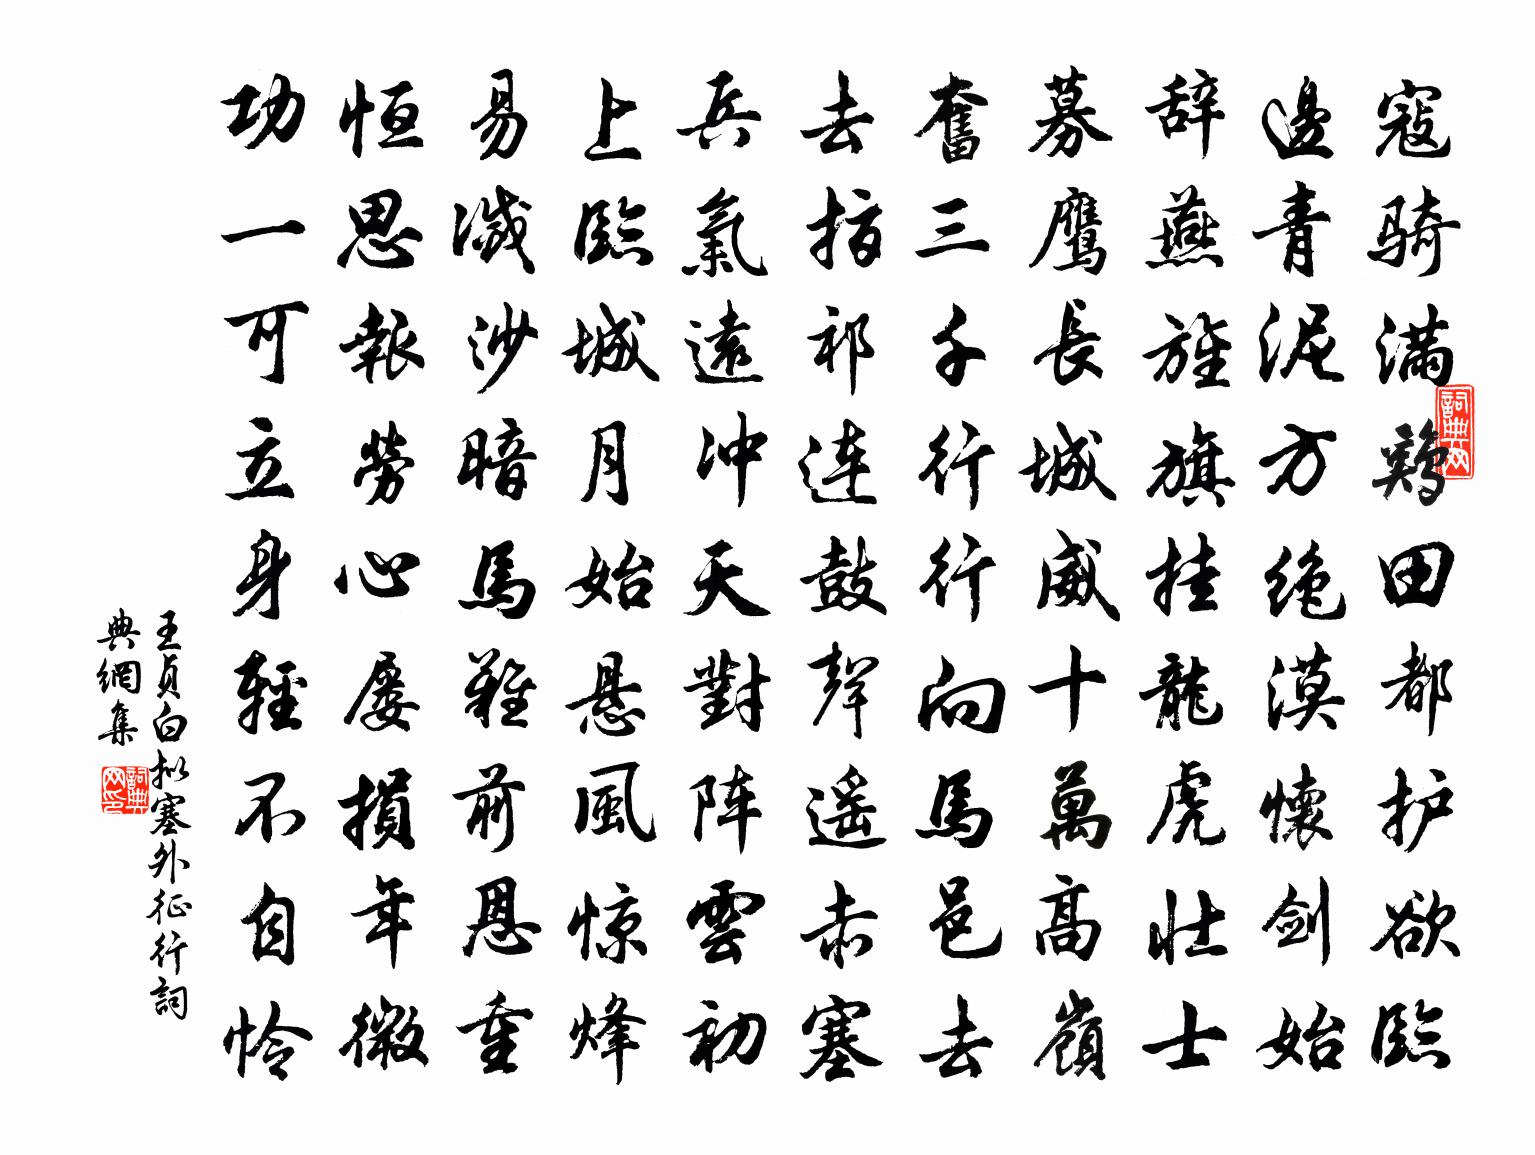 寇骑满鷄田都护欲臨
邊青泥方绝漠懷剑始
辞燕旌旗挂龍虎壮士
募鹰長城威十萬高嶺
奮三千行行向馬邑去
去指祁连鼓聲遥赤塞
兵氣遠冲天對阵雲初
上臨城月始悬風惊烽
易滅沙暗馬難前恩重
恒思報勞心屡損年微
功一可立身輕不自怜
王貞白拟塞外征行詞
典網集
詞典网
詞典网印